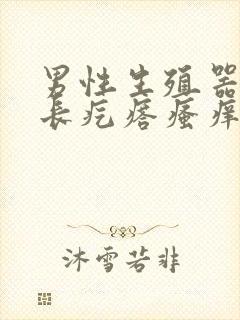 男性生殖器
长疙瘩瘙痒
沐雪若非